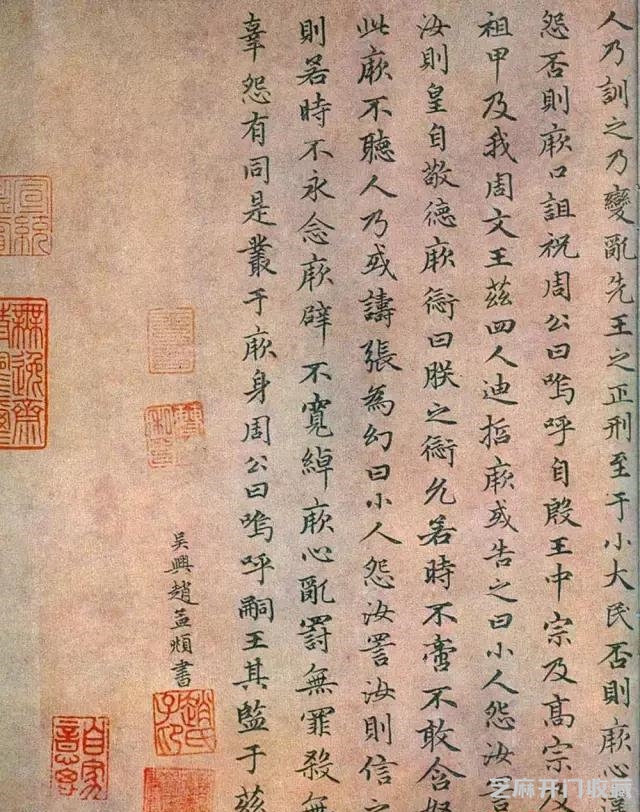 人乃訓之乃變亂先王之正刑至于小大民否則厥心違
怨否則厥口詛祝周公曰嗚呼自殷王中宗及高宗
祖甲及我周文王茲四人迪哲厥或告之曰小人怨汝詈
汝則皇自敬德厥愆曰朕之愆允若時不啻不敢含怒
此厥不聽人乃或譸張為幻曰小人怨汝詈汝則信之
則若時不永念厥辟不寬綽厥心亂罰無罪殺無
辜怨有同是叢于厥身周公曰嗚呼嗣王其監于茲
吳興趙孟頫書
趙氏子昂
無逸齋
芝麻开门收藏